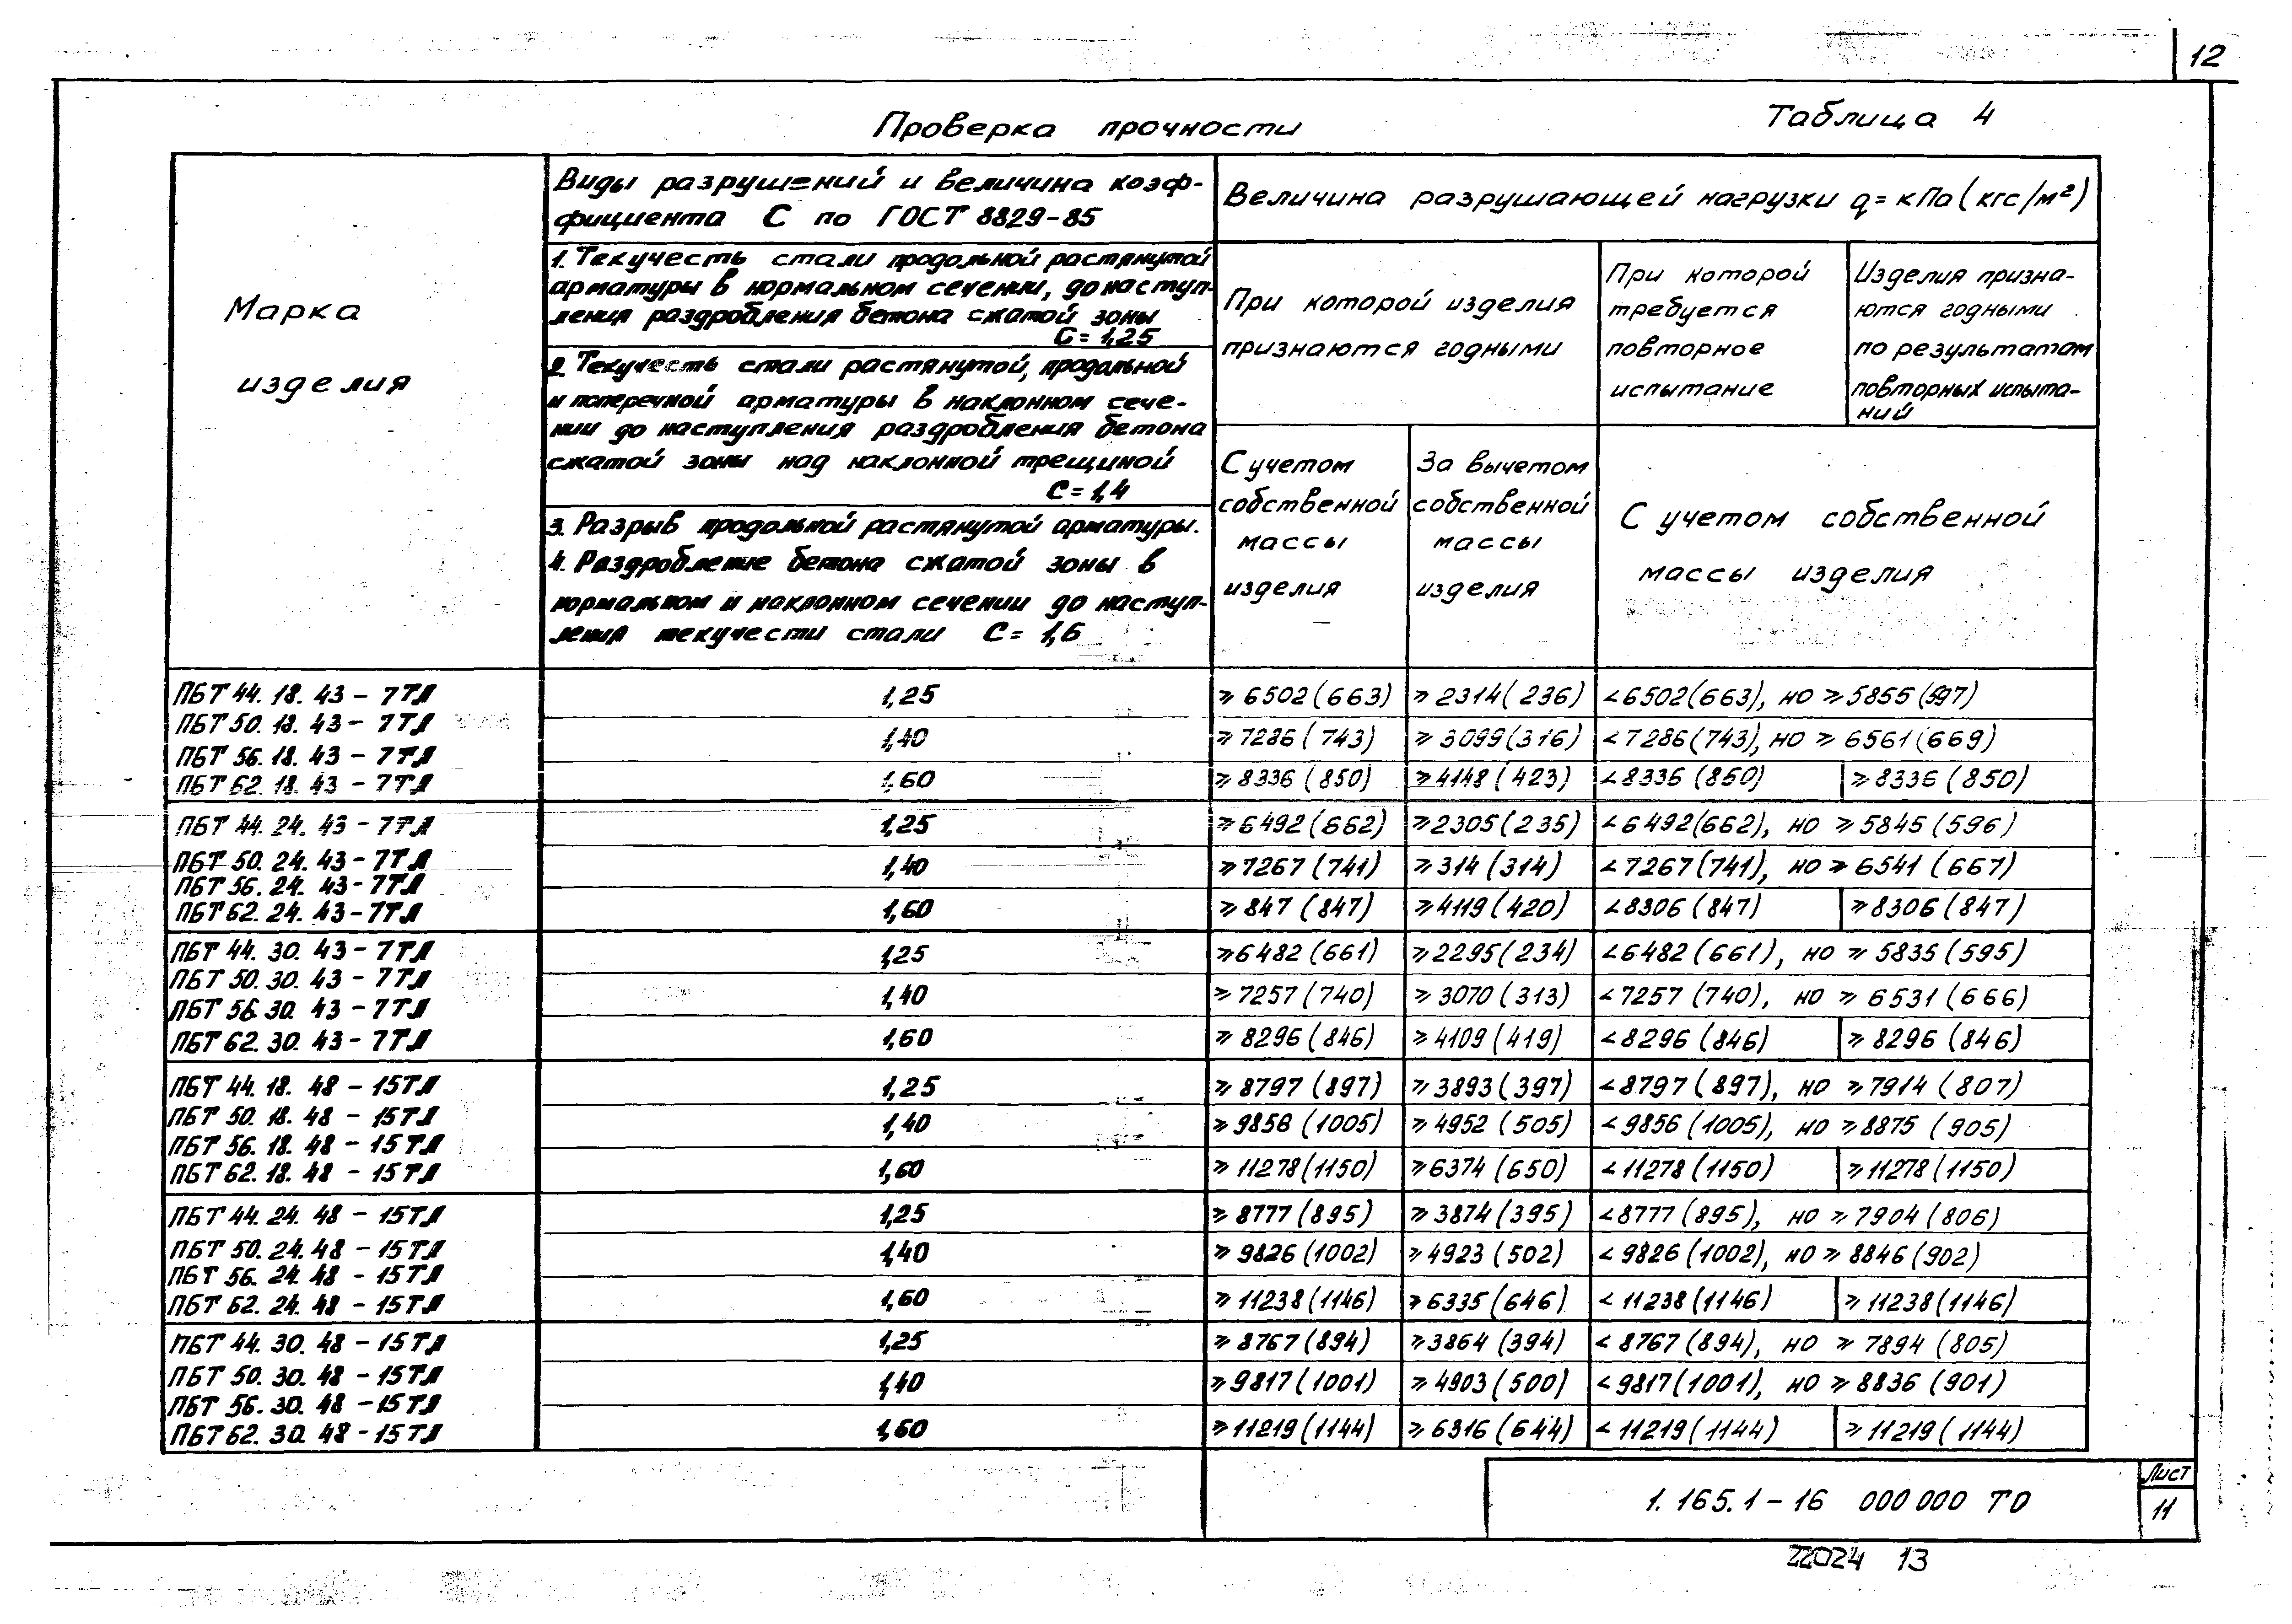 12
Проверка прочности
Таблица 4
Марка
изделия
Виды разрушений и величина коэф-
фициента С по ГОСТ 8829-85
1. Текучесть стали продольной растянутой
арматуры в нормальном сечении, до наступ-
ления раздробления бетона сжатой зоны
С = 1,25
2. Текучесть стали растянутой, продольной
и поперечной арматуры в наклонном сече-
нии до наступления раздробления бетона
сжатой зоны над наклонной трещиной
С = 1,4
3. Разрыв продольной растянутой арматуры.
4. Раздробление бетона сжатой зоны в
нормальном и наклонном сечении до наступ-
ления текучести стали С = 1,6
Величина разрушающей нагрузки q = кПа (кгс/м²)
При которой изделия
признаются годными
При которой
требуется
повторное
испытание
Изделия призна-
ются годными
по результатам
повторных испыта-
ний
С учетом
собственной
массы
изделия
За вычетом
собственной
массы
изделия
С учетом собственной
массы изделия
ПБТ 44.18.43 - 7ТЛ
ПБТ 50.18.43 - 7ТЛ
ПБТ 56.18.43 - 7ТЛ
ПБТ 62.18.43 - 7ТЛ
1,25 ⩾ 6502 (663) ⩾ 2314 (236) < 6502 (663), но ⩾ 5855 (597)
1,40 ⩾ 7286 (743) ⩾ 3099 (316) < 7286 (743), но ⩾ 6561 (669)
1,60 ⩾ 8336 (850) ⩾ 4148 (423) < 8336 (850) ⩾ 8336 (850)
ПБТ 44.24.43 - 7ТЛ
ПБТ 50.24.43 - 7ТЛ
ПБТ 56.24.43 - 7ТЛ
ПБТ 62.24.43 - 7ТЛ
1,25 ⩾ 6492 (662) ⩾ 2305 (235) < 6492 (662), но ⩾ 5845 (596)
1,40 ⩾ 7267 (741) ⩾ 314 (314) < 7267 (741), но ⩾ 6541 (667)
1,60 ⩾ 847 (847) ⩾ 4119 (420) < 8306 (847) ⩾ 8306 (847)
ПБТ 44.30.43 - 7ТЛ
ПБТ 50.30.43 - 7ТЛ
ПБТ 56.30.43 - 7ТЛ
ПБТ 62.30.43 - 7ТЛ
1,25 ⩾ 6482 (661) ⩾ 2295 (234) < 6482 (661), но ⩾ 5835 (595)
1,40 ⩾ 7257 (740) ⩾ 3070 (313) < 7257 (740), но ⩾ 6531 (666)
1,60 ⩾ 8296 (846) ⩾ 4109 (419) < 8296 (846) ⩾ 8296 (846)
ПБТ 44.18.48 - 15ТЛ
ПБТ 50.18.48 - 15ТЛ
ПБТ 56.18.48 - 15ТЛ
ПБТ 62.18.48 - 15ТЛ
1,25 ⩾ 8797 (897) ⩾ 3893 (397) < 8797 (897), но ⩾ 7914 (807)
1,40 ⩾ 9856 (1005) ⩾ 4952 (505) < 9856 (1005), но ⩾ 8875 (905)
1,60 ⩾ 11278 (1150) ⩾ 6374 (650) < 11278 (1150) ⩾ 11278 (1150)
ПБТ 44.24.48 - 15ТЛ
ПБТ 50.24.48 - 15ТЛ
ПБТ 56.24.48 - 15ТЛ
ПБТ 62.24.48 - 15ТЛ
1,25 ⩾ 8777 (895) ⩾ 3874 (395) < 8777 (895), но ⩾ 7904 (806)
1,40 ⩾ 9826 (1002) ⩾ 4923 (502) < 9826 (1002), но ⩾ 8846 (902)
1,60 ⩾ 11238 (1146) ⩾ 6335 (646) < 11238 (1146) ⩾ 11238 (1146)
ПБТ 44.30.48 - 15ТЛ
ПБТ 50.30.48 - 15ТЛ
ПБТ 56.30.48 - 15ТЛ
ПБТ 62.30.48 - 15ТЛ
1,25 ⩾ 8767 (894) ⩾ 3864 (394) < 8767 (894), но ⩾ 7894 (805)
1,40 ⩾ 9817 (1001) ⩾ 4903 (500) < 9817 (1001), но ⩾ 8836 (901)
1,60 ⩾ 11219 (1144) ⩾ 6316 (644) < 11219 (1144) ⩾ 11219 (1144)
1.165.1-16 000 000 ТО
Лист
11
22024 13